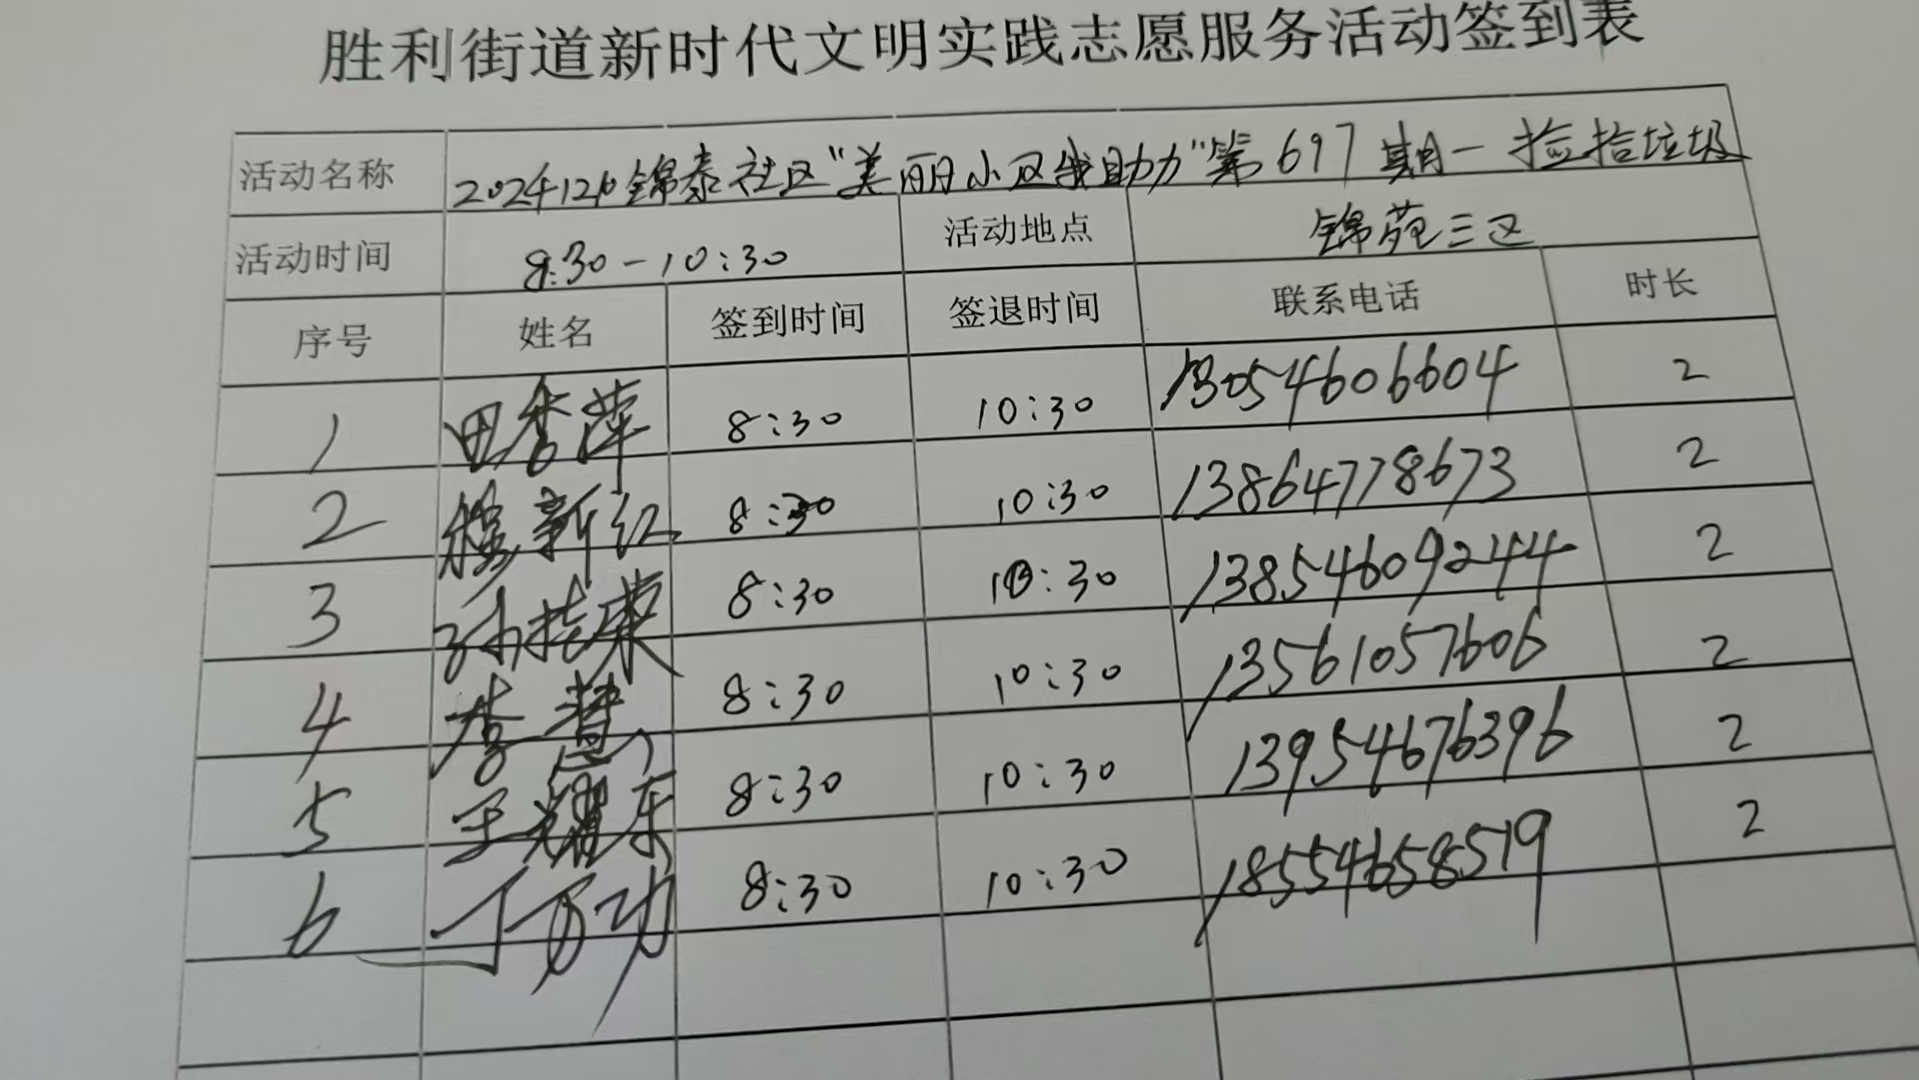 胜利街道新时代文明实践志愿服务活动签到表
活动名称 锦泰社区“美丽小区我助力”第697期一捡拾垃圾
活动时间 8:30-10:30 活动地点 锦苑三区
序号 姓名 签到时间 签退时间 联系电话 时长
1 田秀萍 8:30 10:30 13054606604 2
2 穆新红 8:30 10:30 13864778673 2
3 8:30 10:30 13854609244 2
4 李慧 8:30 10:30 13561057606 2
5 王耀东 8:30 10:30 13954676396 2
6 丁万功 8:30 10:30 18554658519 2